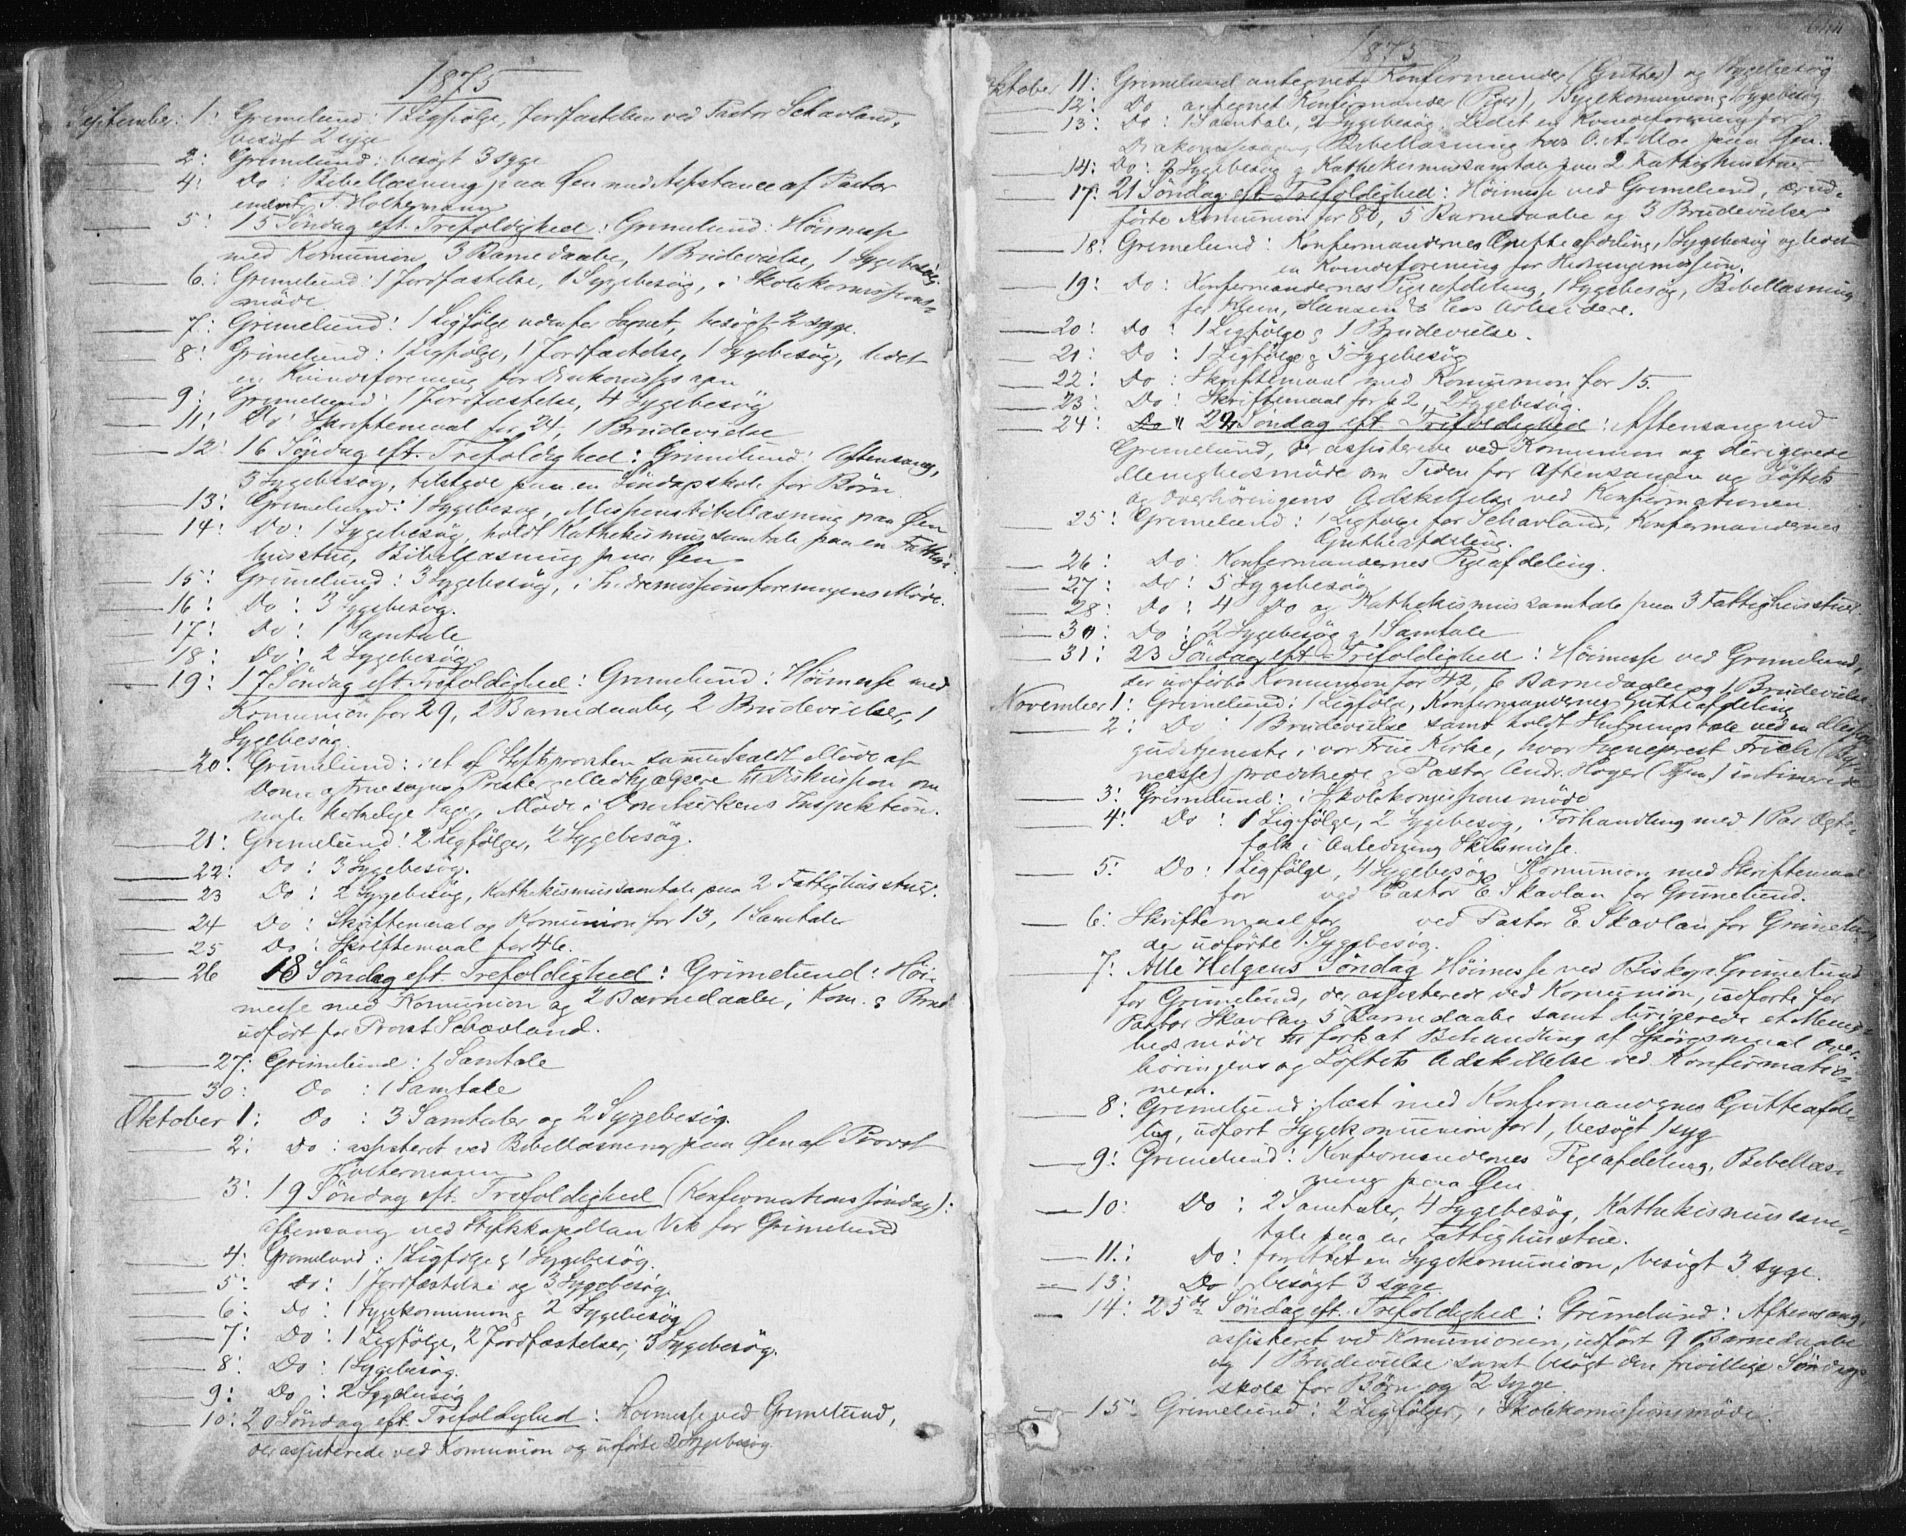 1875
September: 1: Grimelund: 1 Ligfølge, Jordfæstelsen ved Pastor Schavland,
besøgt 2 syge
2: Grimelund: besøgt 3 syge
4: Do: Bibellæsning paa Øen med Assistance af Pastor
emerit. F. Holtermann
5: 15 Søndag eft. Trefoldighed: Grimelund: Høimesse
med Komunion, 3 Barnedaabe, 1 Brudevielse, 1 Sygebesøg
6: Grimelund: 1 Jordfæstelse, 1 Sygebesøg, i Skolekomissions-
møde
7: Grimelund: 1 Ligfølge udenfor Sognet, besøgt 2 syge.
8: Grimelund: 1 Ligfølge, 1 Jordfæstelse, 1 Sygebesøg, ledet
en Kvindeforening for Diakonissesagen
9: Grimelund: 1 Jordfæstelse, 4 Sygebesøg
11: Do: Skriftemaal for 24, 1 Brudevielse
12: 16 Søndag eft. Trefoldighed: Grimelund: Aftensang,
3 Sygebesøg, tilstede paa en Søndagsskole for Børn
13: Grimelund: 1 Sygebesøg, Missionsbibellæsning paa Øen
14: Do: 1 Sygebesøg, holdt Kathekismussamtale paa en Fattig-
husstue, Bibellæsning paa Øen
15: Grimelund: 3 Sygebesøg, i Indremissionsforeningens Møde.
16: Do: 3 Sygebesøg.
17: Do: 1 Samtale
18: Do: 2 Sygebesøg
19: 17 Søndag eft Trefoldighed: Grimelund: Høimesse med
Komunion for 29, 2 Barnedaabe, 2 Brudevielser, 1
Sygebesøg
20: Grimelund: i et af Stiftsprovsten sammenkaldt Møde af
Dom- og Fruesogns Prester og Medhjælpere til Diskussion om
kirkelige Sager, Møde i Domkirkens Inspektion.
21: Grimelund: 2 Ligfølger, 2 Sygebesøg.
22: Do: 3 Sygebesøg.
23 Do: 2 Sygebesøg, Kathekismussamtale paa 2 Fattighusstuer.
24 Do: Skriftemaal og Komunion for 13, 1 Samtale
25 Do: Skriftemaal for 46.
26 18 Søndag eft. Trefoldighed: Grimelund: Høi-
messe med Komunion og 2 Barnedaabe; Kom. & Brud
udført for Provst Schavland.
27: Grimelund: 1 Samtale
30: Do: 1 Samtale
Oktober 1: Do: 3 Samtaler og 2 Sygebesøg.
2: Do: assisteret ved Bibellæsning paa Øen af Provst
Holtermann
3: 19 Søndag eft. Trefoldighed (Konfirmationssøndag):
Aftensang ved Stiftskapellan Vik for Grimelund
4: Grimelund: 1 Ligfølge & 1 Sygebesøg.
5: Do: 1 Jordfæstelse og 3 Sygebesøg.
6: Do: 1 Sygekomunion & 2 Sygebesøg
7: Do: 1 Ligfølge, 2 Jordfæstelser, 3 Sygebesøg.
8: Do: 1 Sygebesøg.
9: Do: 2 Sygebesøg
10: 20 Søndag eft. Trefoldighed: Høimesse ved Grimelund,
der assisterede ved Komunion og udførte 2 Sygebesøg.
1875
Oktober 11: Grimelund antegnet Konfirmander (Gutter) og Sygebesøg
12: Do antegnet Konfirmander (Piger), 1 Sygekomunion & Sygebesøg
13: Do: 1 Samtale, 2 Sygebesøg, Ledet en Kvindeforening for
Diakonissesagen, Bibellæsning hos O. A. Moe paa Øen.
14: Do: 3 Sygebesøg & Kathekismussamtale paa 2 Fattighusstuer
17: 21 Søndag eft. Trefoldighed: Høimesse ved Grimelund, der ud-
førte Komunion for 80, 5 Barnedaabe og 3 Brudevielser
18: Grimelund: Konfirmandernes Gutteafdeling, 1 Sygebesøg og ledet
en Kvindeforening for Hedningemission.
19: Do: Konfirmandernes Pigeafdeling, 1 Sygebesøg, Bibellæsning
for Huun, Hansen & Co's Arbeidere.
20: Do: 1 Ligfølge & 1 Brudevielse.
21: Do: 1 Ligfølge & 5 Sygebesøg
22: Do: Skriftemaal med Komunion for 15.
23: Do: Skriftemaal for 12, 2 Sygebesøg.
24: 22 Søndag eft. Trefoldighed: Aftensang ved
Grimelund, der assisterede ved Komunion og dirigerede
Menighedsmøde om Tiden for Aftensangen og Løftets
og Overhøringens Adskillelse ved Konfirmationen
25: Grimelund: 1 Ligfølge for Schavland, Konfirmandernes
Gutteafdeling.
26: Do: Konfirmandernes Pigeafdeling.
27: Do: 5 Sygebesøg
28: Do: 4 Do og Kathekismussamtale paa 3 Fattighusstuer
30: Do: 2 Sygebesøg & 1 Samtale
31: 23 Søndag eft. Trefoldighed: Høimesse ved Grimelund,
der udførte Komunion for 42, 6 Barnedaabe og 1 Brudevielse
November 1: Grimelund: 1 Ligfølge, Konfirmandernes Gutteafdeling
2: Do: 1 Brudevielse samt holdt Slutningstale ved en Missions-
gudstjeneste i vor Frue Kirke, hvor Sogneprest Frich (Byn-
nesset) prædikede & Pastor Andr. Hoyer (Fyen) intimerede
3: Grimelund: i Skolekomissionsmøde
4: Do: 1 Ligfølge, 2 Sygebesøg, Forhandling med 1 Par Ægte-
folk i Anledning Skilsmisse.
5: Do: 1 Ligfølge, 4 Sygebesøg, Komunion med Skriftemaal
for ved Pastor E. Skavlan for Grimelund.
6: Skriftemaal for ved Pastor E. Skavlan for Grimelund
der udførte 1 Sygebesøg.
7: Alle Helgens Søndag Høimesse ved Biskop Grimelund
for Grimelund, der assisterede ved Komunion, udførte for
Pastor Skavlan 5 Barnedaabe samt dirigerede et Menig-
hedsmøde til fortsat Behandling af Spørgsmaal Over-
høringens og Løftets Adskillelse ved Konfirmatio-
nen.
8: Grimelund: læst med Konfirmandernes Gutteafde-
ling, udført Sygekomunion for 1, besøgt 1 syg
9: Grimelund: Konfirmandernes Pigeafdeling, Bibellæs-
ning paa Øen.
10: Do: 2 Samtaler, 4 Sygebesøg, Kathekismussam-
tale paa en Fattighusstue.
11: Do: forrettet en Sygekomunion, besøgt 3 syge.
13: Do: besøgt 3 syge.
14: 25de Søndag eft. Trefoldighed: Grimelund: Aftensang,
assisteret ved Komunionen, udført 9 Barnedaabe
og 1 Brudevielse samt besøgt den frivillige Søndags-
skole for Børn og 2 syge.
15: Grimelund: 2 Ligfølger, i Skolekomissionsmøde.